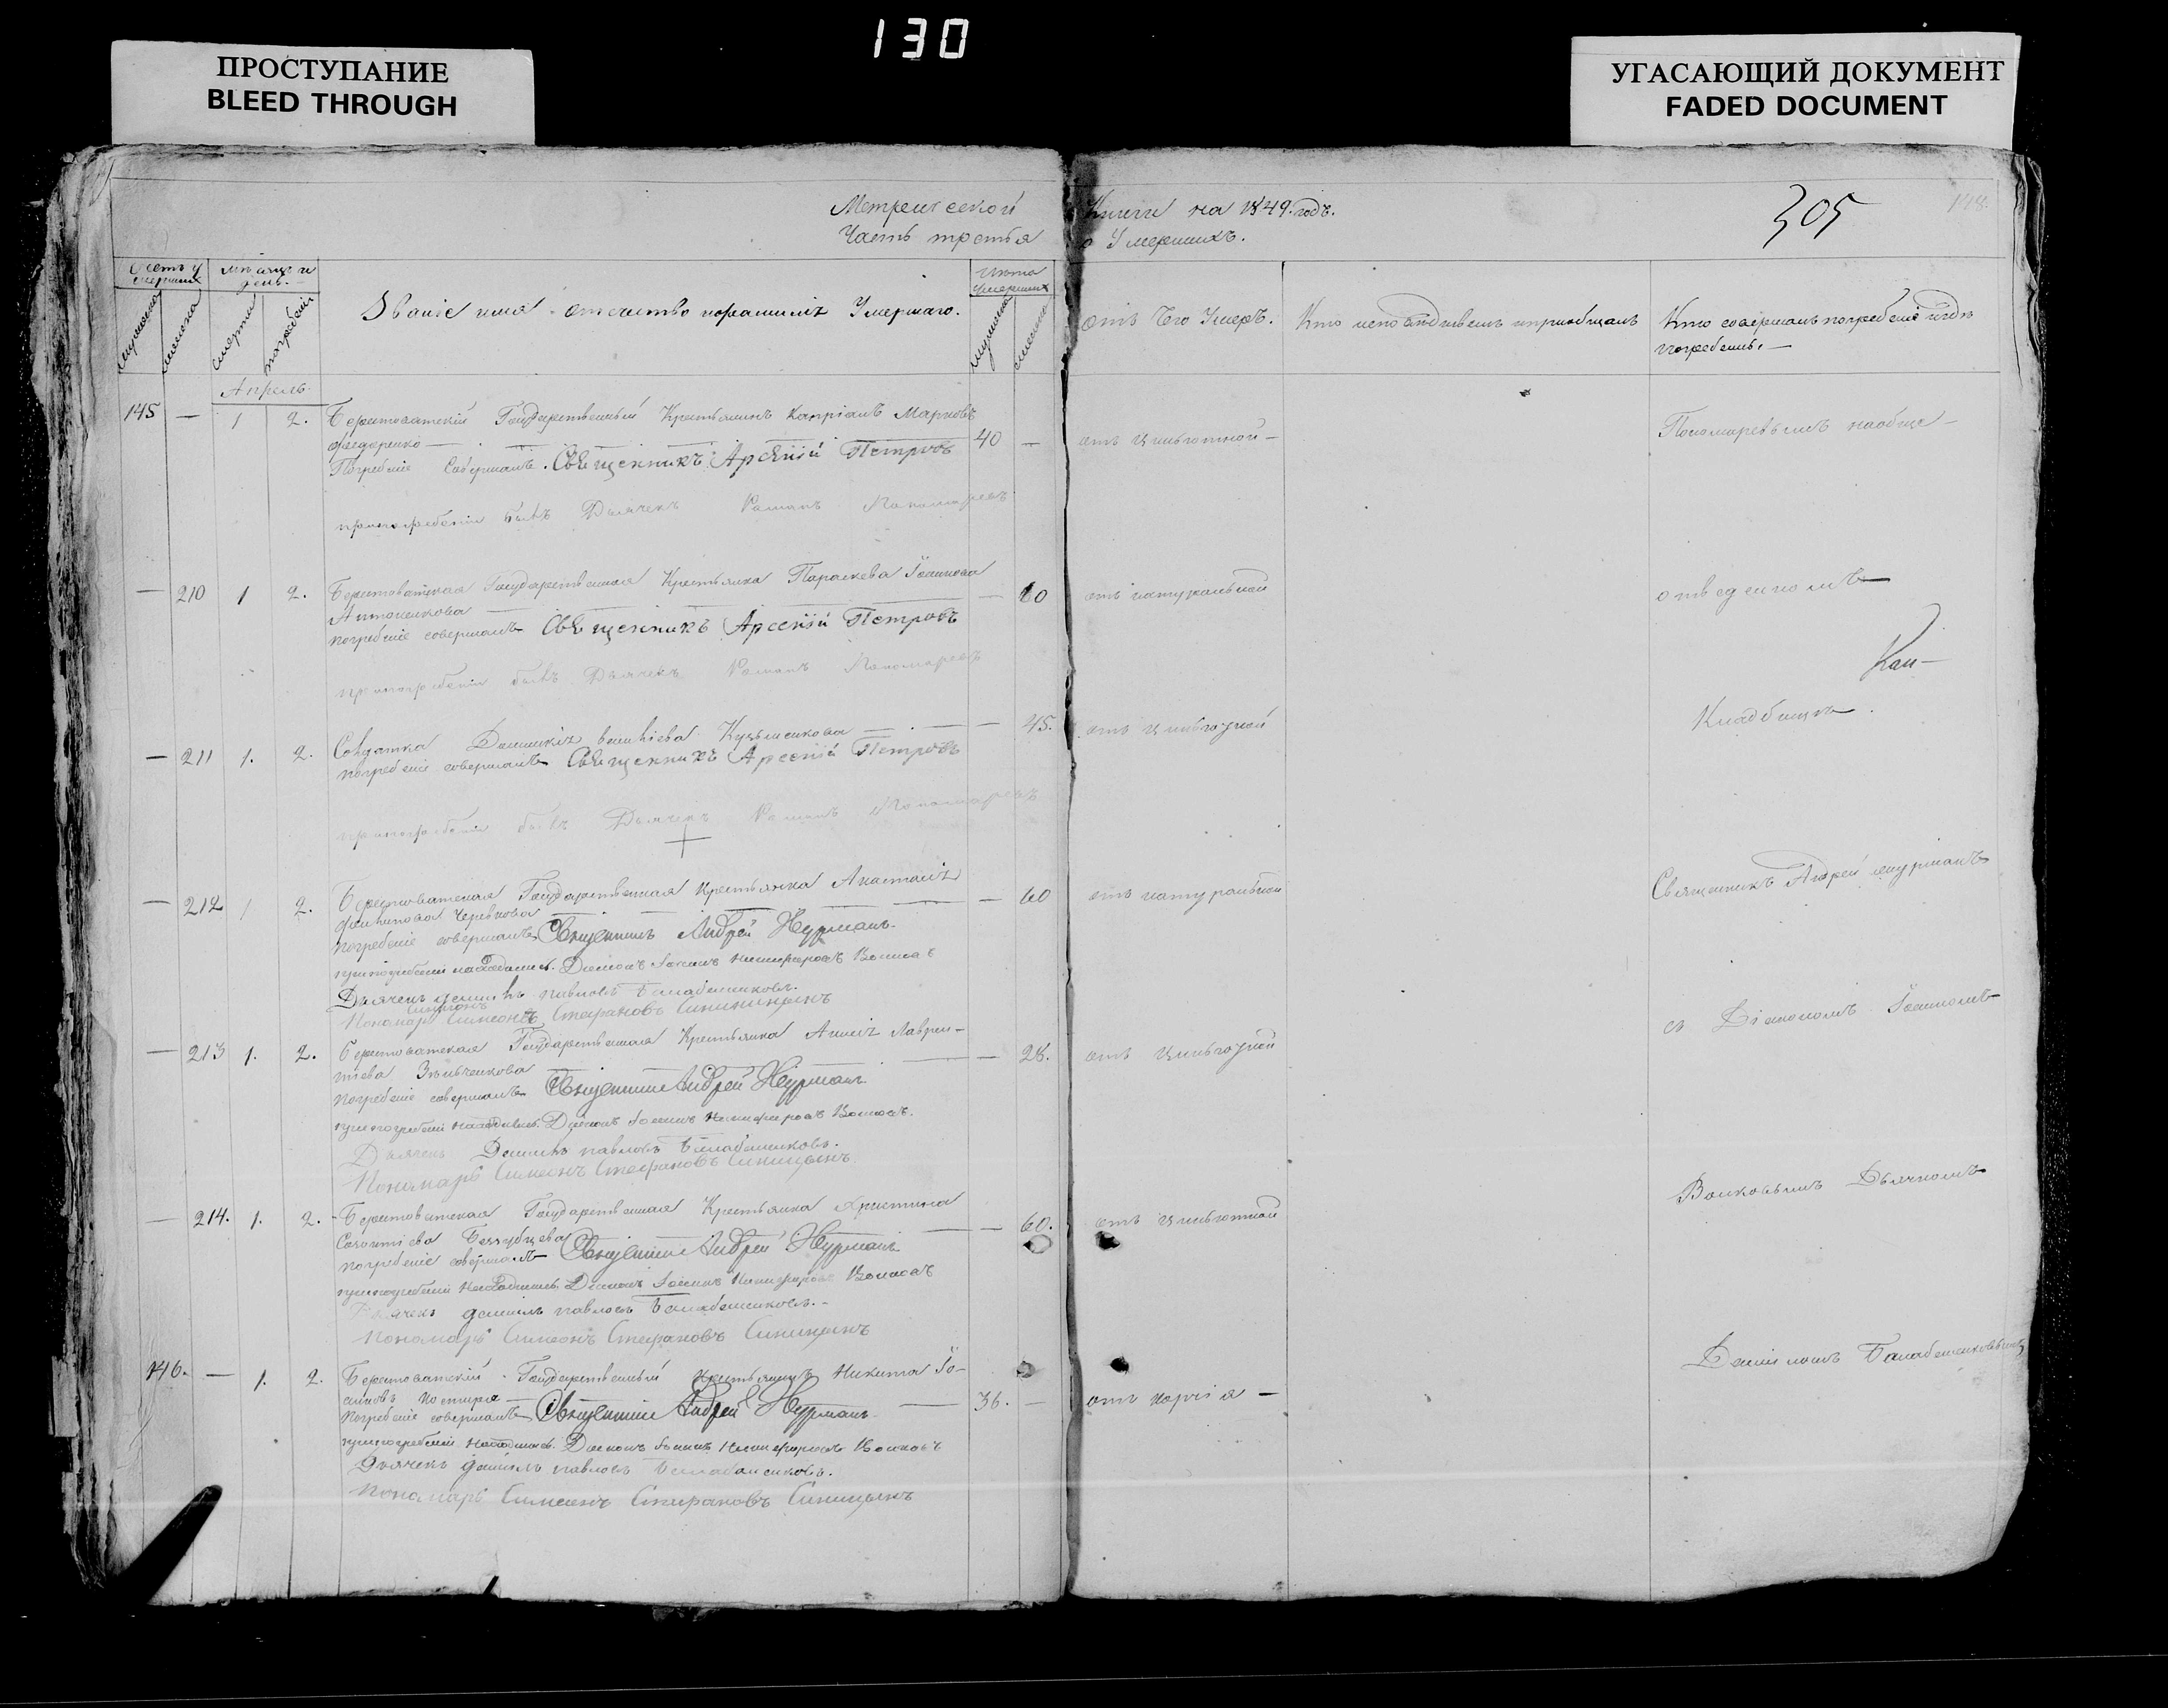 130
ПРОСТУПАНИЕ
BLEED THROUGH
УГАСАЮЩИЙ ДОКУМЕНТ
FADED DOCUMENT
Метрической Книги на 1849. годъ.
Часть третья о Умершихъ.
305
148.
Счетъ умершихъ
мужеска
женска
мѣсяцъ и день.
смерти
погребенія
Званіе имя отечество и фамилія Умершаго.
Лѣта Умершихъ
мужеска
женска
отъ Чего Умеръ.
Кто исповѣдывалъ и пріобщалъ
Кто совершалъ погребеніе и гдѣ
погребены. —
Апрель.
145 — 1 2. Берестоватскій Государственный Крестьянинъ Капріанъ Марковъ
Федоренко — 40 — отъ
Погребеніе Совершалъ. Священникъ Арсеній Петровъ
при погребеніи былъ Дьячекъ Романъ Пономаревъ
Пономаревымъ на обще-
— 210 1 2. Берестоватская Государственная Крестьянка Параскева Іоаннова
Антоненкова — 60 отъ натуральной
погребеніе совершалъ Священникъ Арсеній Петровъ
при погребеніи былъ Дьячекъ Романъ Пономаревъ
отведенномъ
Кан-
Кладбищѣ.
— 211 1. 2. Солдатка Кузьменкова — 45. отъ
погребеніе совершалъ Священникъ Арсеній Петровъ
при погребеніи былъ Дьячекъ Романъ Пономаревъ
— 212 1 2. Берестоватская Государственная Крестьянка Анастасія
Филипова — 60 отъ натуральной
погребеніе совершалъ Священникъ Андрей
при погребеніи находились. Діаконъ Іоаннъ Никифоровъ Волковъ
Дьячекъ Даніилъ Павловъ Балабешиковъ.
Пономарь Симеонъ Стефановъ Синицынъ
Священникъ Андрей
съ Діакономъ Іоанномъ
— 213 1. 2. Берестоватская Государственная Крестьянка Анна Лаврен-
тіева — 28. отъ
погребеніе совершалъ Священникъ Андрей
при погребеніи находились. Діаконъ Іоаннъ Никифоровъ Волковъ.
Дьячекъ Даніилъ Павловъ Балабешиковъ.
Пономарь Симеонъ Стефановъ Синицынъ
Волковымъ Дьячкомъ
— 214. 1. 2. Берестоватская Государственная Крестьянка Христина
— 60. отъ
погребеніе совершалъ Священникъ Андрей
при погребеніи находились. Діаконъ Іоаннъ Никифоровъ Волковъ
Дьячекъ Даніилъ Павловъ Балабешиковъ.
Пономарь Симеонъ Стефановъ Синицынъ
Даніиломъ Балабешиковымъ
146. — 1. 2. Берестоватскій Государственный Крестьянинъ Никита Іо-
анновъ 36. — отъ
погребеніе совершалъ Священникъ Андрей
при погребеніи находились. Діаконъ Іоаннъ Никифоровъ Волковъ
Дьячекъ Даніилъ Павловъ Балабешиковъ.
Пономарь Симеонъ Стефановъ Синицынъ